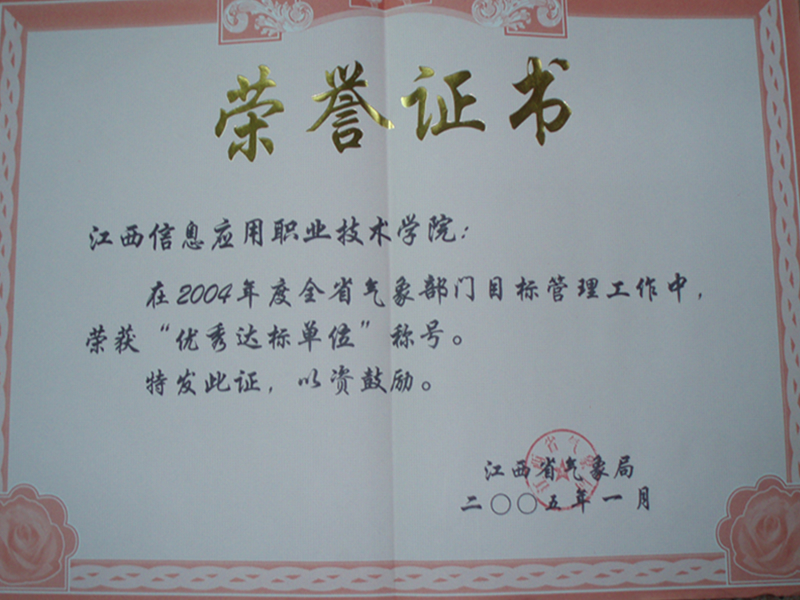 荣誉证书
江西信息应用职业技术学院：
在2004年度全省气象部门目标管理工作中，
荣获“优秀达标单位”称号。
特发此证，以资鼓励。
江西省气象局
二〇〇五年一月